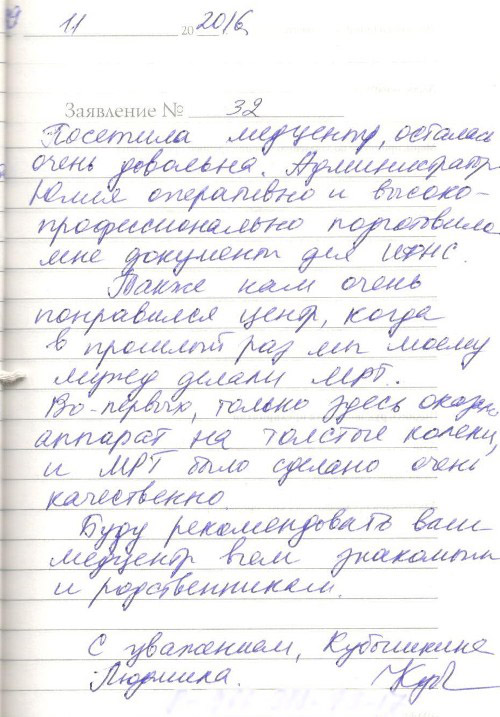 11 20 2016
Заявление № 32
Посетила медцентр, осталась
очень довольна. Администратор
Юлия оперативно и высоко-
профессионально подготовила
мне документ для ИФНС.
Также нам очень
понравился центр, когда
в прошлый раз мы моему
мужу делали МРТ.
Во-первых, только здесь оказался
аппарат на толстые коленки,
и МРТ было сделано очень
качественно.
Буду рекомендовать ваш
медцентр всем знакомым
и родственникам.
С уважением, Кубышкина
Людмила.